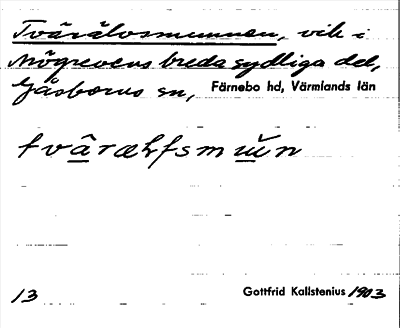 Tvärälvsmunnen, vik i
Mögrevens breda sydliga del,
Gåsborns sn, Färnebo hd, Värmlands län
tvâræłfsmuǹn
13 Gottfrid Kallstenius 1903